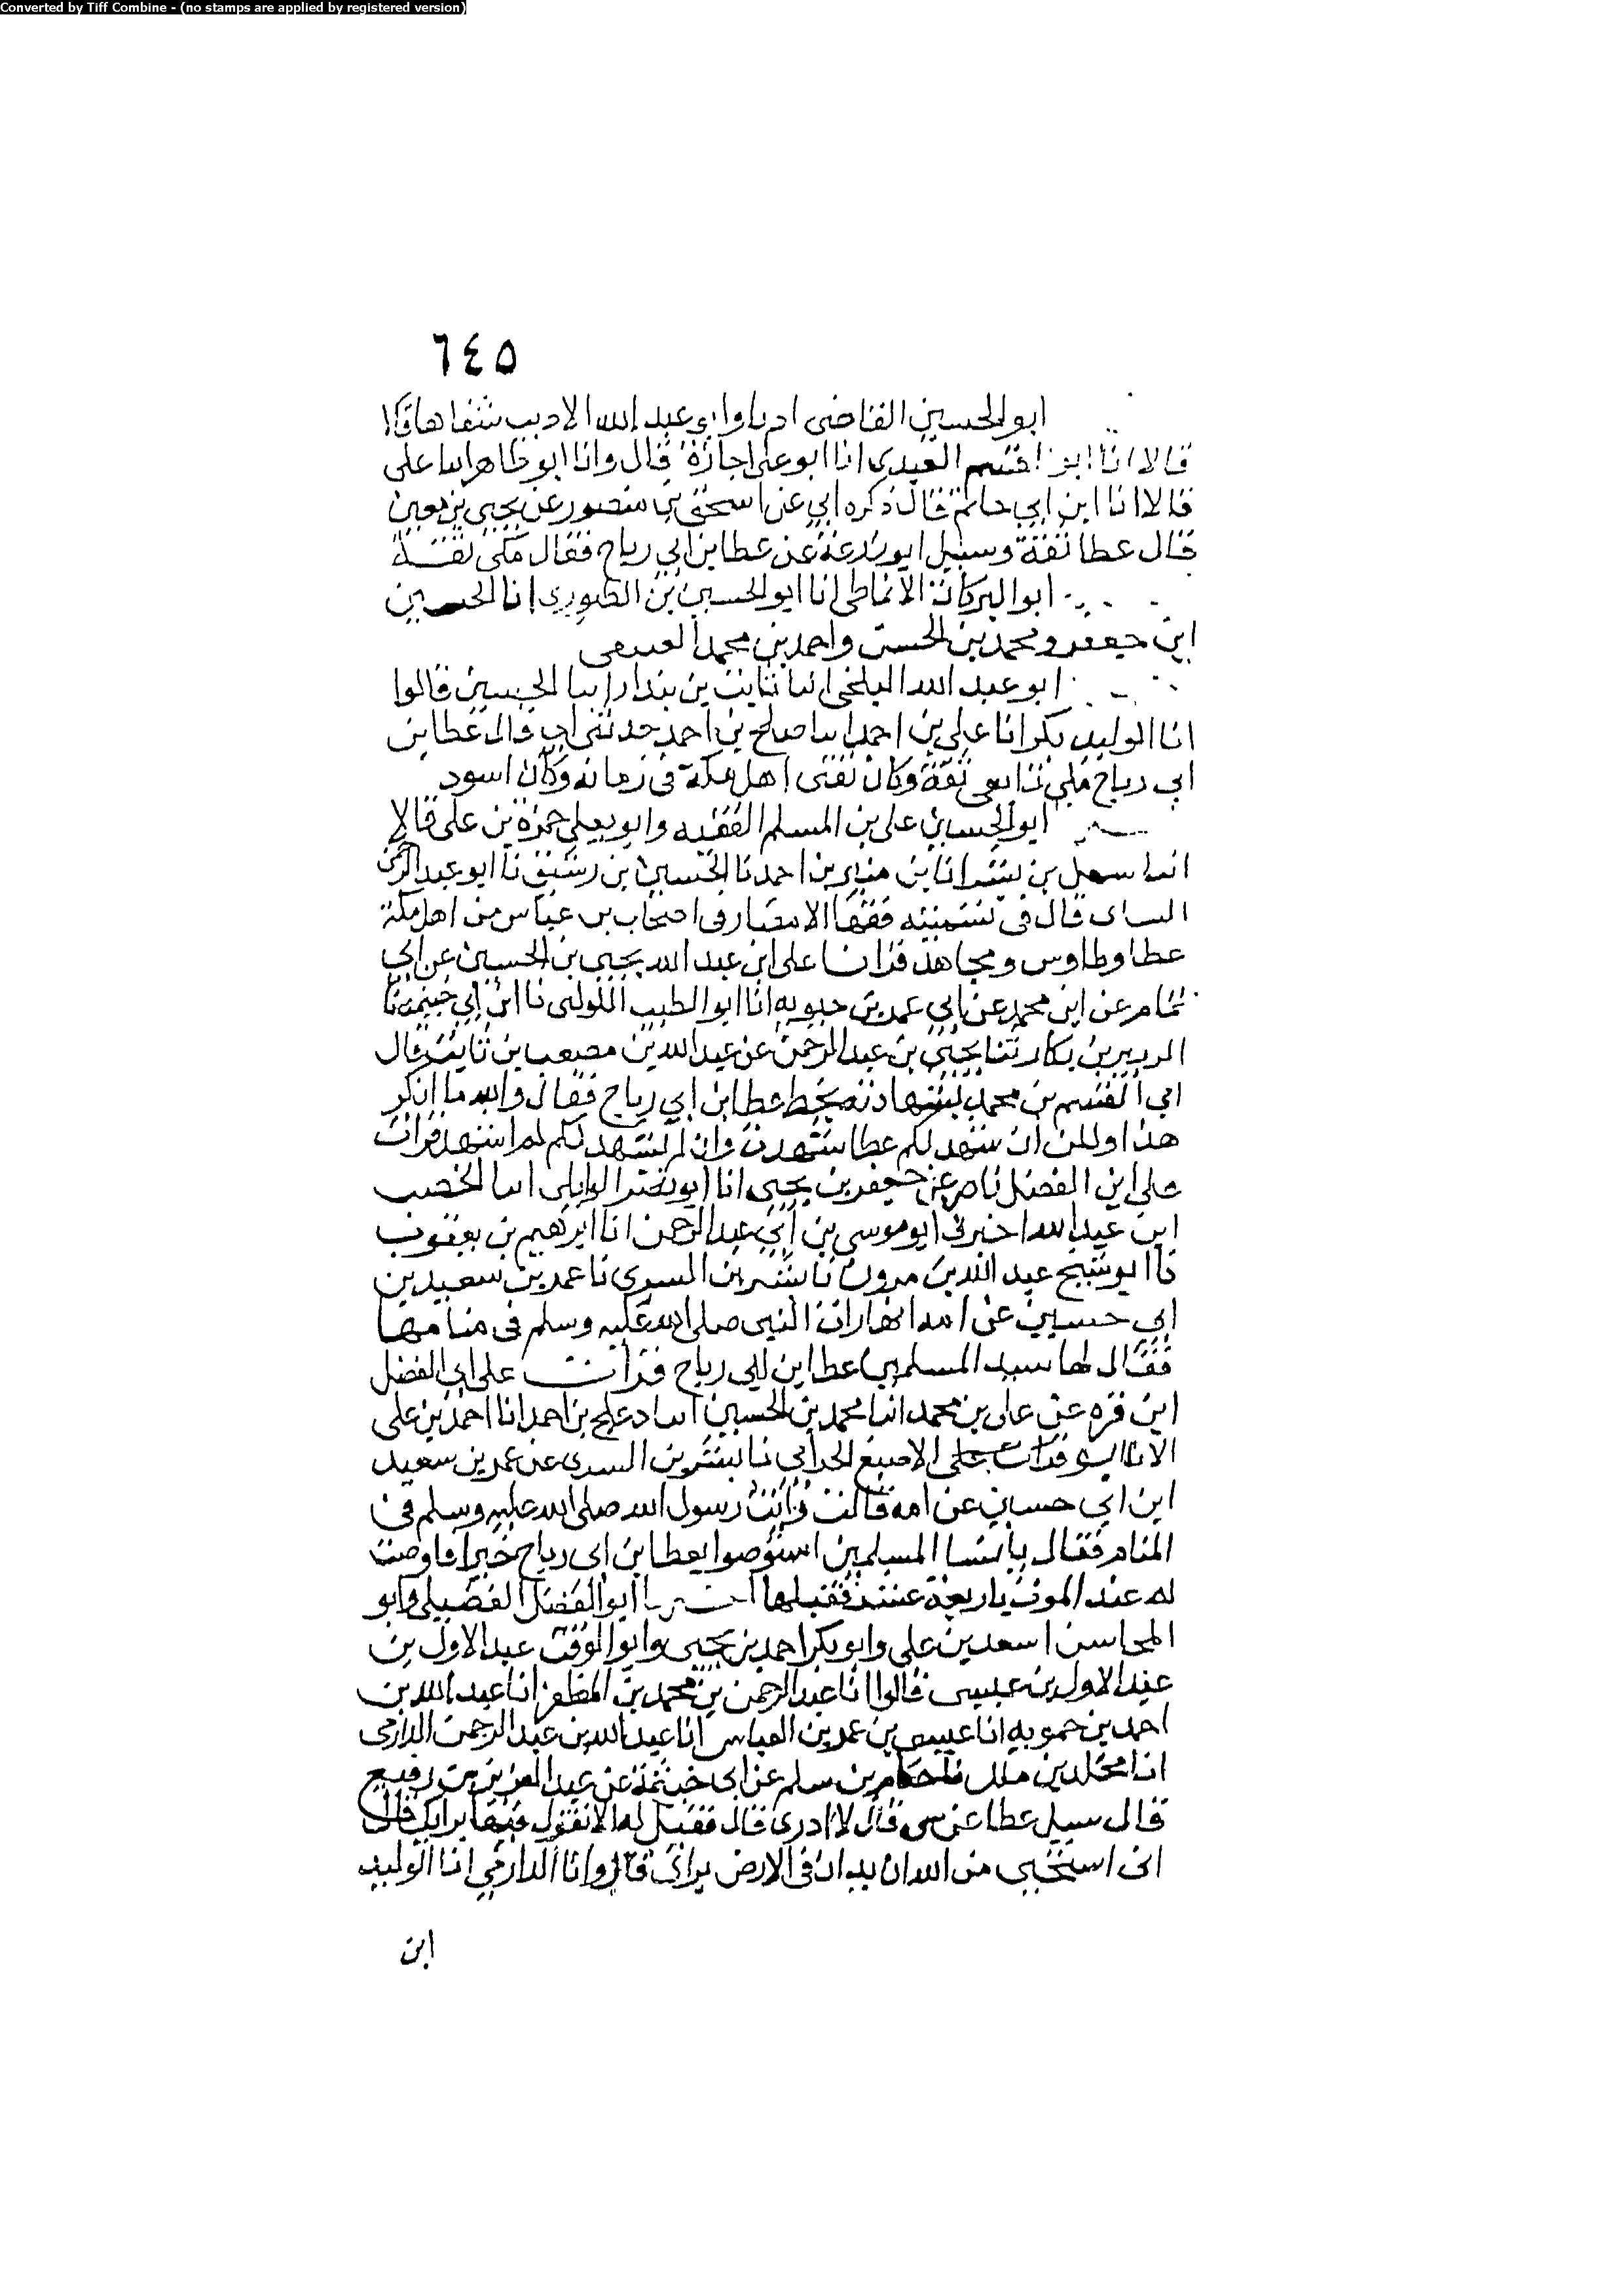 Converted by Tiff Combine - (no stamps are applied by registered version)
٦٤٥
ابو الحسين القاضى وابو عبد الله الاديب شفاها
قالا انا ابو القسم العبدى انا ابو على اجازة قال وانا ابو طاهر انبا على
قالا انا ابن ابي حاتم قال ذكره ابي عن اسحق بن منصور عن يحيى بن معين
قال عطا ثقة وسيل ابو زرعة عن عطا بن ابي رباح فقال مكى ثقة
ابو البركات الانماطى انا ابو الحسين بن الطيورى انا الحسين
ابن جعفر ومحمد بن الحسن واحمد بن محمد العتيقى
ابو عبد الله البلخى انبا ثابت بن بندار انبا الحسين قالوا
انا الوليد بكر انا على بن احمد انبا صالح بن احمد حدثنى ابي قال عطا بن
ابي رباح مكى تابعى ثقة وكان مفتى اهل مكة فى زمانه وكان اسود
ابو الحسين على بن المسلم الفقيه وابو يعلى حمزة بن على قالا
انبا سهل بن بشر انا بن منير بن احمد نا الحسين بن رشيق نا ابو عبد الرحمن
النساى قال فى تسمية فقها الامصار فى اصحاب بن عباس من اهل مكة
عطا وطاوس ومجاهد قرانا على ابن عبد الله يحيى بن الحسين عن ابي
تمام عن ابن محمد عن ابي عمر بن حيويه انا ابو الطيب الكوكبى نا ابن ابي خيثمة نا
الزبير بن بكار ثنا يحيى بن عبد الرحمن عن عبد الله بن مصعب بن ثابت قال
اتي القسم بن محمد بشهادته بخط عطا بن ابي رباح فقال والله ما انكر
هذا ولكن ان شهد لكم عطا شهدت وان لم يشهد لكم لم اشهد قرات
على ابن الفضل ناصر عن جعفر بن يحيى انا ابو نصر الوايلى انبا الخصيب
ابن عبد الله اخبرنى ابو موسى بن ابي عبد الرحمن انا ابرهيم بن يعقوب
نا ابو شبيح عبد الله بن مرون نا بشر بن السرى نا عمر بن سعيد بن
ابي حسين عن امه انها رات النبى صلى الله عليه وسلم فى منامها
فقال لها سيد المسلمين عطا بن ابي رباح قرات على ابى الفضل
ابن قره عن على بن محمد انبا محمد بن الحسين انبا دعلج بن احمد انا احمد بن على
الاصبغ الحرانى نا بشر بن السرى عن عمر بن سعيد
ابن ابي حسين عن امه قالت رايت رسول الله صلى الله عليه وسلم فى
المنام فقال يا نسا المسلمين استوصوا بعطا بن ابى رباح خيرا فاوصت
له عند الموت باربعة عشر فقبلها ابو الفضل الفضيلى وابو
المحاسن اسعد بن على وابو بكر احمد بن يحيى وابو الوقت عبد الاول بن
عبد الاول بن عيسى قالوا انا عبد الرحمن بن محمد بن المظفر انا عبد الله بن
احمد بن حمويه انا عيسى بن عمر بن العباس انا عبد الله بن عبد الرحمن الدارمى
انا مخلد بن ملك نا حكام بن سلم عن ابى خيثمة عن عبد العزيز بن رفيع
قال سيل عطا عن شى قال لا ادرى قال فقيل له الا تقول فيها برايك قال
انى استحيى من الله ان يدان فى الارض برائى قال وانا الدارمي انا الوليد
ابن